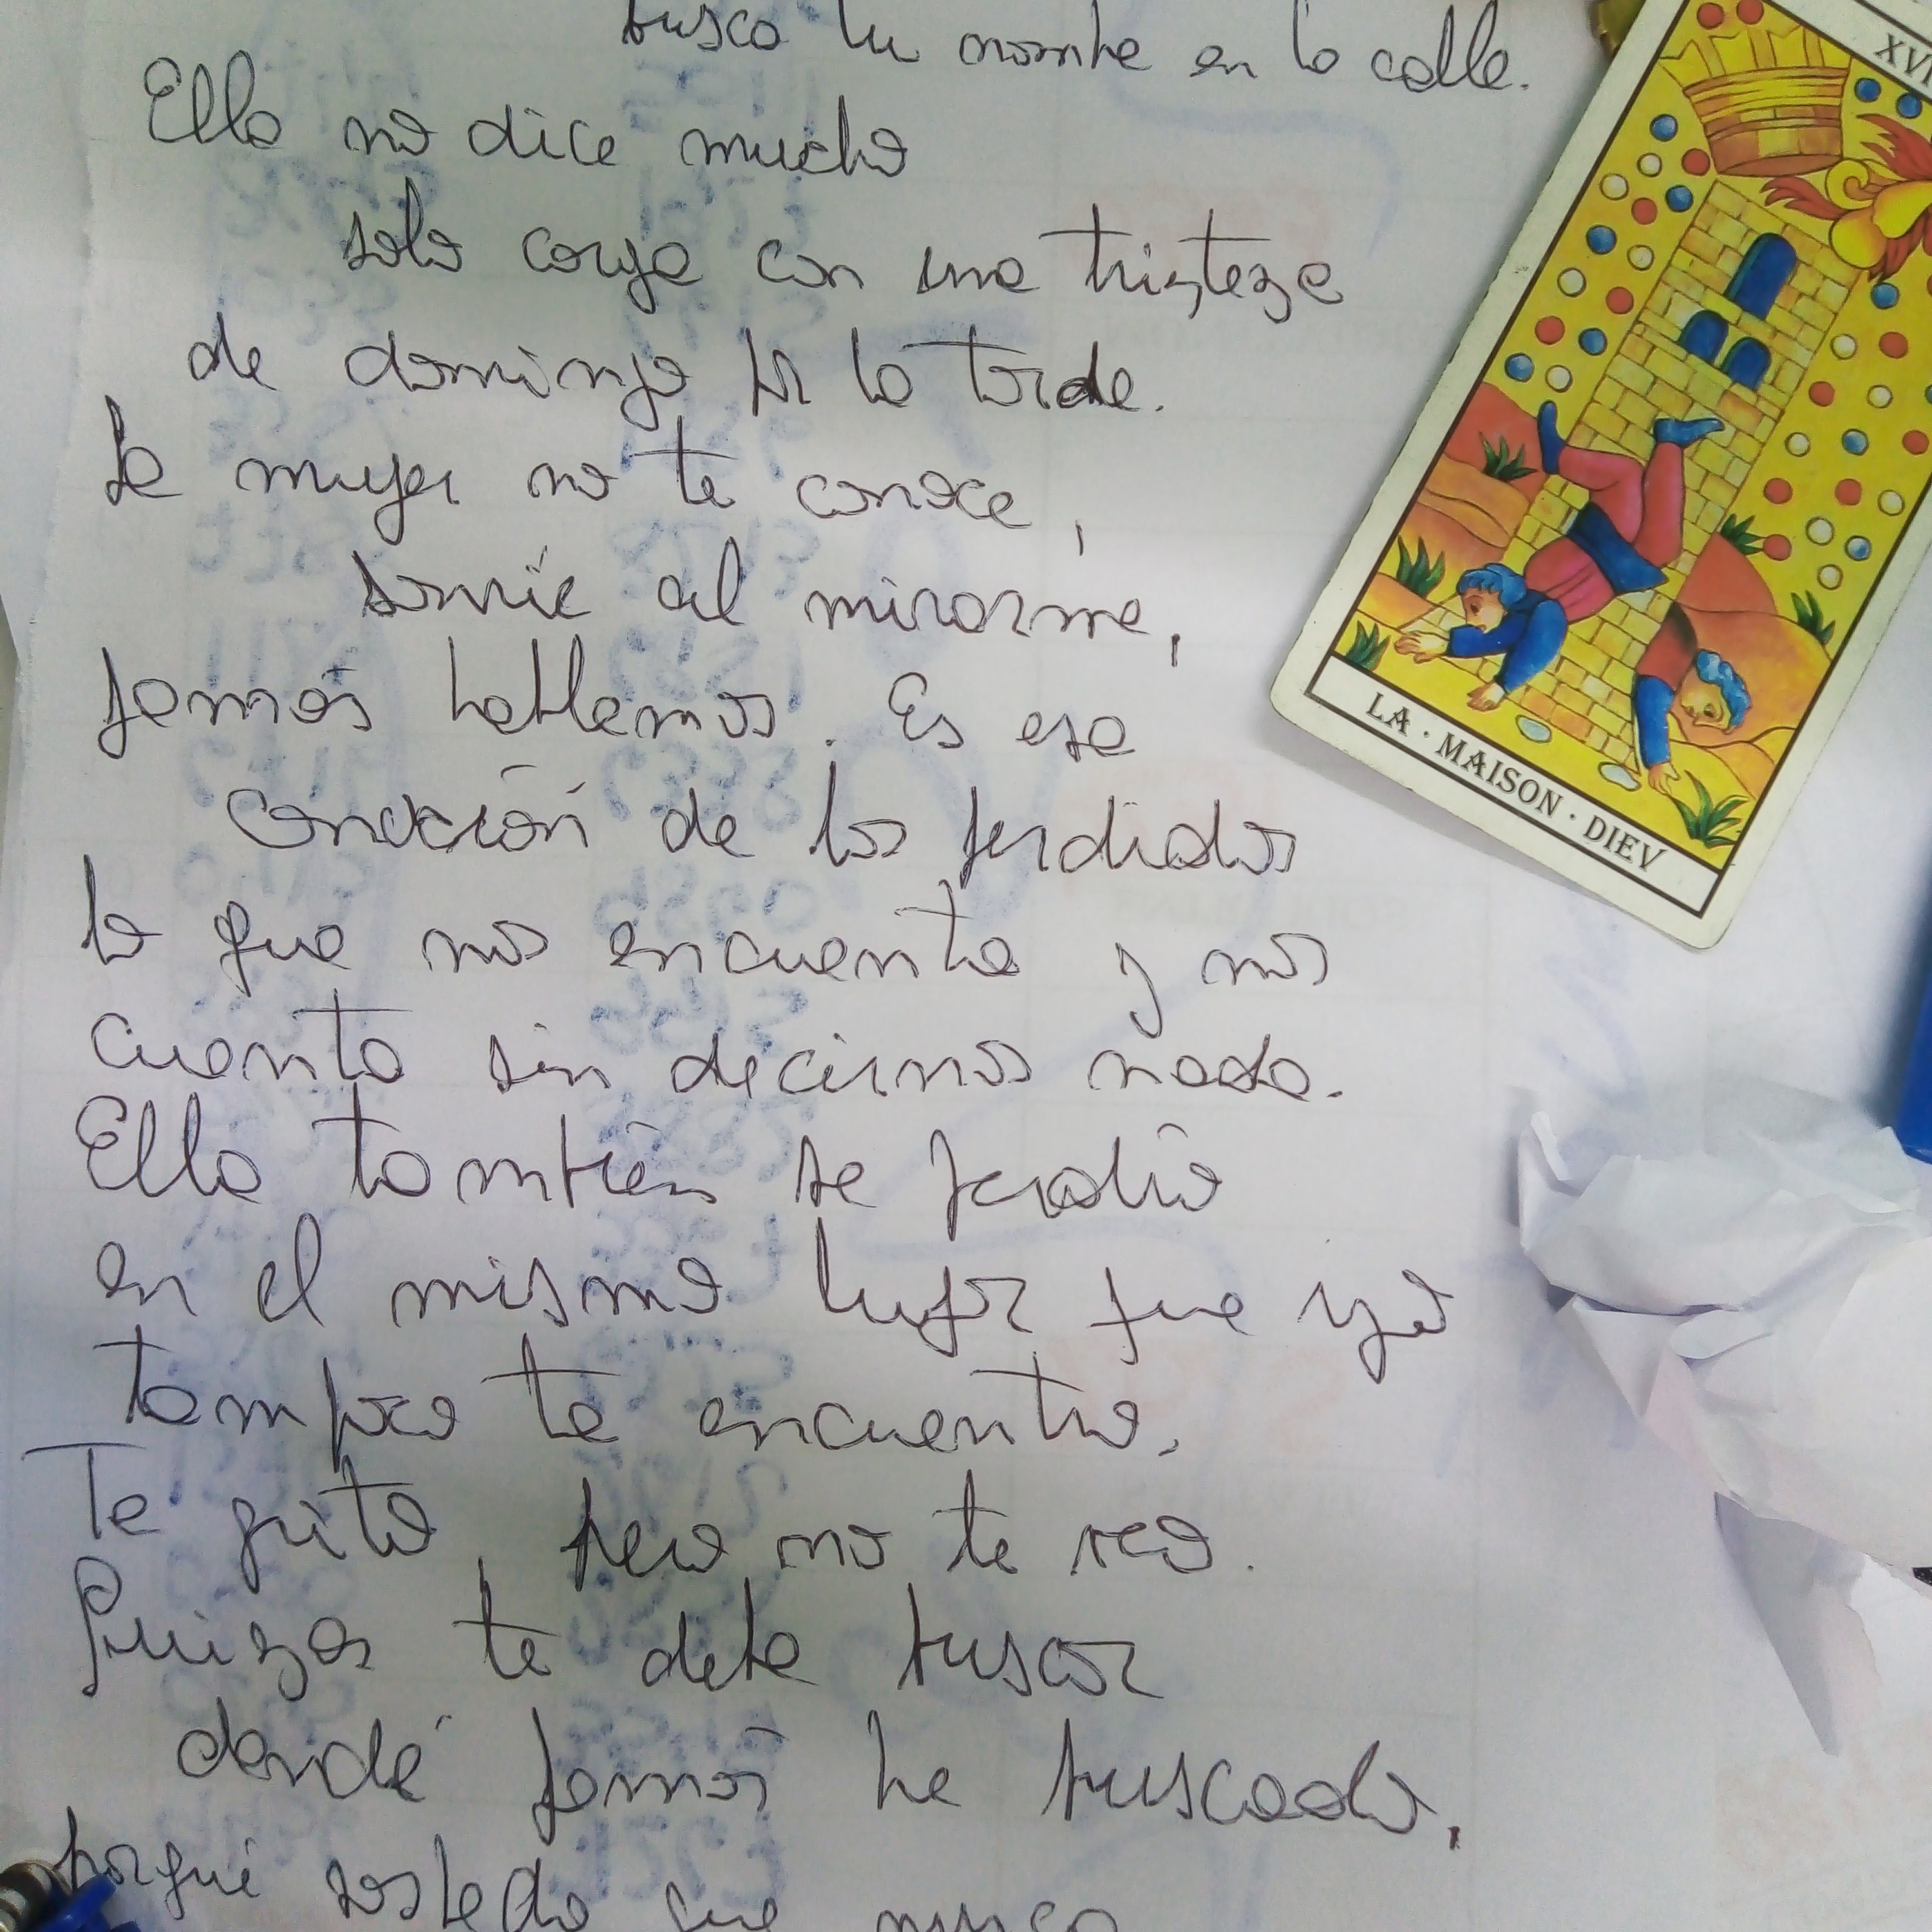 busco tu nombre en la calle.
Ella no dice mucho
solo carga con una tristeza
de domingo por la tarde.
La mujer no te conoce,
sonríe al mirarme,
jamás hablamos. Es esa
conexión de los perdidos
la que nos encuentra y nos
cuenta sin decirnos nada.
Ella también se perdió
en el mismo lugar que yo
tampoco te encuentro.
Te grito, pero no te veo.
Quizás te deba buscar
dondé jamás he buscado,
porqué
que nunca
XVI
LA · MAISON · DIEV